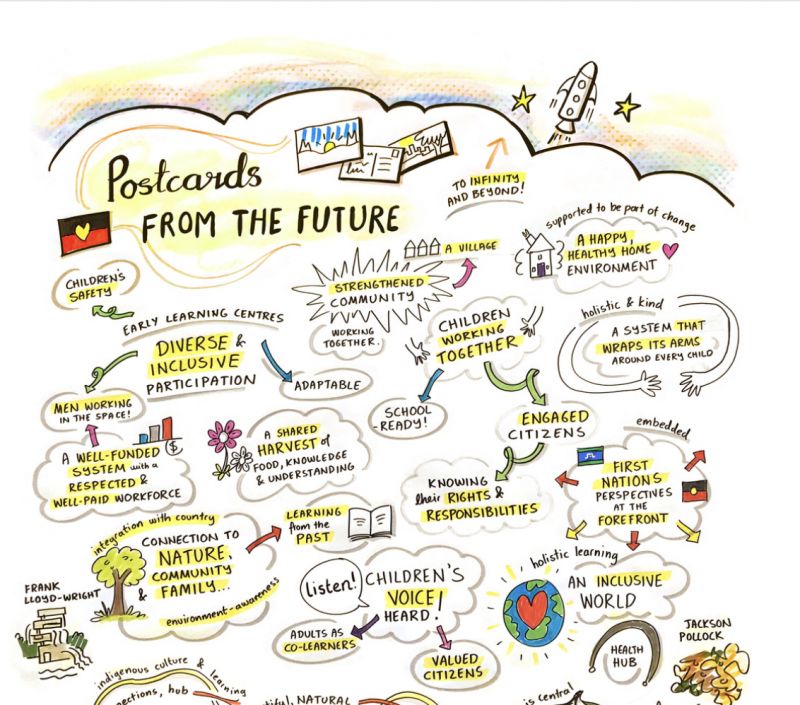 Postcards
FROM THE FUTURE
TO INFINITY
AND BEYOND!
supported to be part of change
A HAPPY,
HEALTHY HOME
ENVIRONMENT
A VILLAGE
STRENGTHENED
COMMUNITY
WORKING
TOGETHER.
CHILDREN'S
SAFETY
EARLY LEARNING CENTRES
DIVERSE &
INCLUSIVE
PARTICIPATION
ADAPTABLE
CHILDREN
WORKING
TOGETHER
holistic & kind
A SYSTEM THAT
WRAPS ITS ARMS
AROUND EVERY CHILD
MEN WORKING
IN THE SPACE!
SCHOOL
-READY!
ENGAGED
CITIZENS
$
A WELL-FUNDED
SYSTEM with a
RESPECTED &
WELL-PAID WORKFORCE
A SHARED
HARVEST of
FOOD, KNOWLEDGE
& UNDERSTANDING
KNOWING
their RIGHTS &
RESPONSIBILITIES
embedded
FIRST
NATIONS
PERSPECTIVES
AT THE
FOREFRONT
LEARNING
from the
PAST
integration with country
CONNECTION TO
NATURE,
COMMUNITY
& FAMILY...
environment-awareness
Listen!
CHILDREN'S
VOICE
HEARD!
ADULTS AS
CO-LEARNERS
VALUED
CITIZENS
holistic learning
AN INCLUSIVE
WORLD
FRANK
LLOYD-WRIGHT
HEALTH
HUB
JACKSON
POLLOCK
indigenous culture & learning
hub
NATURAL
is central